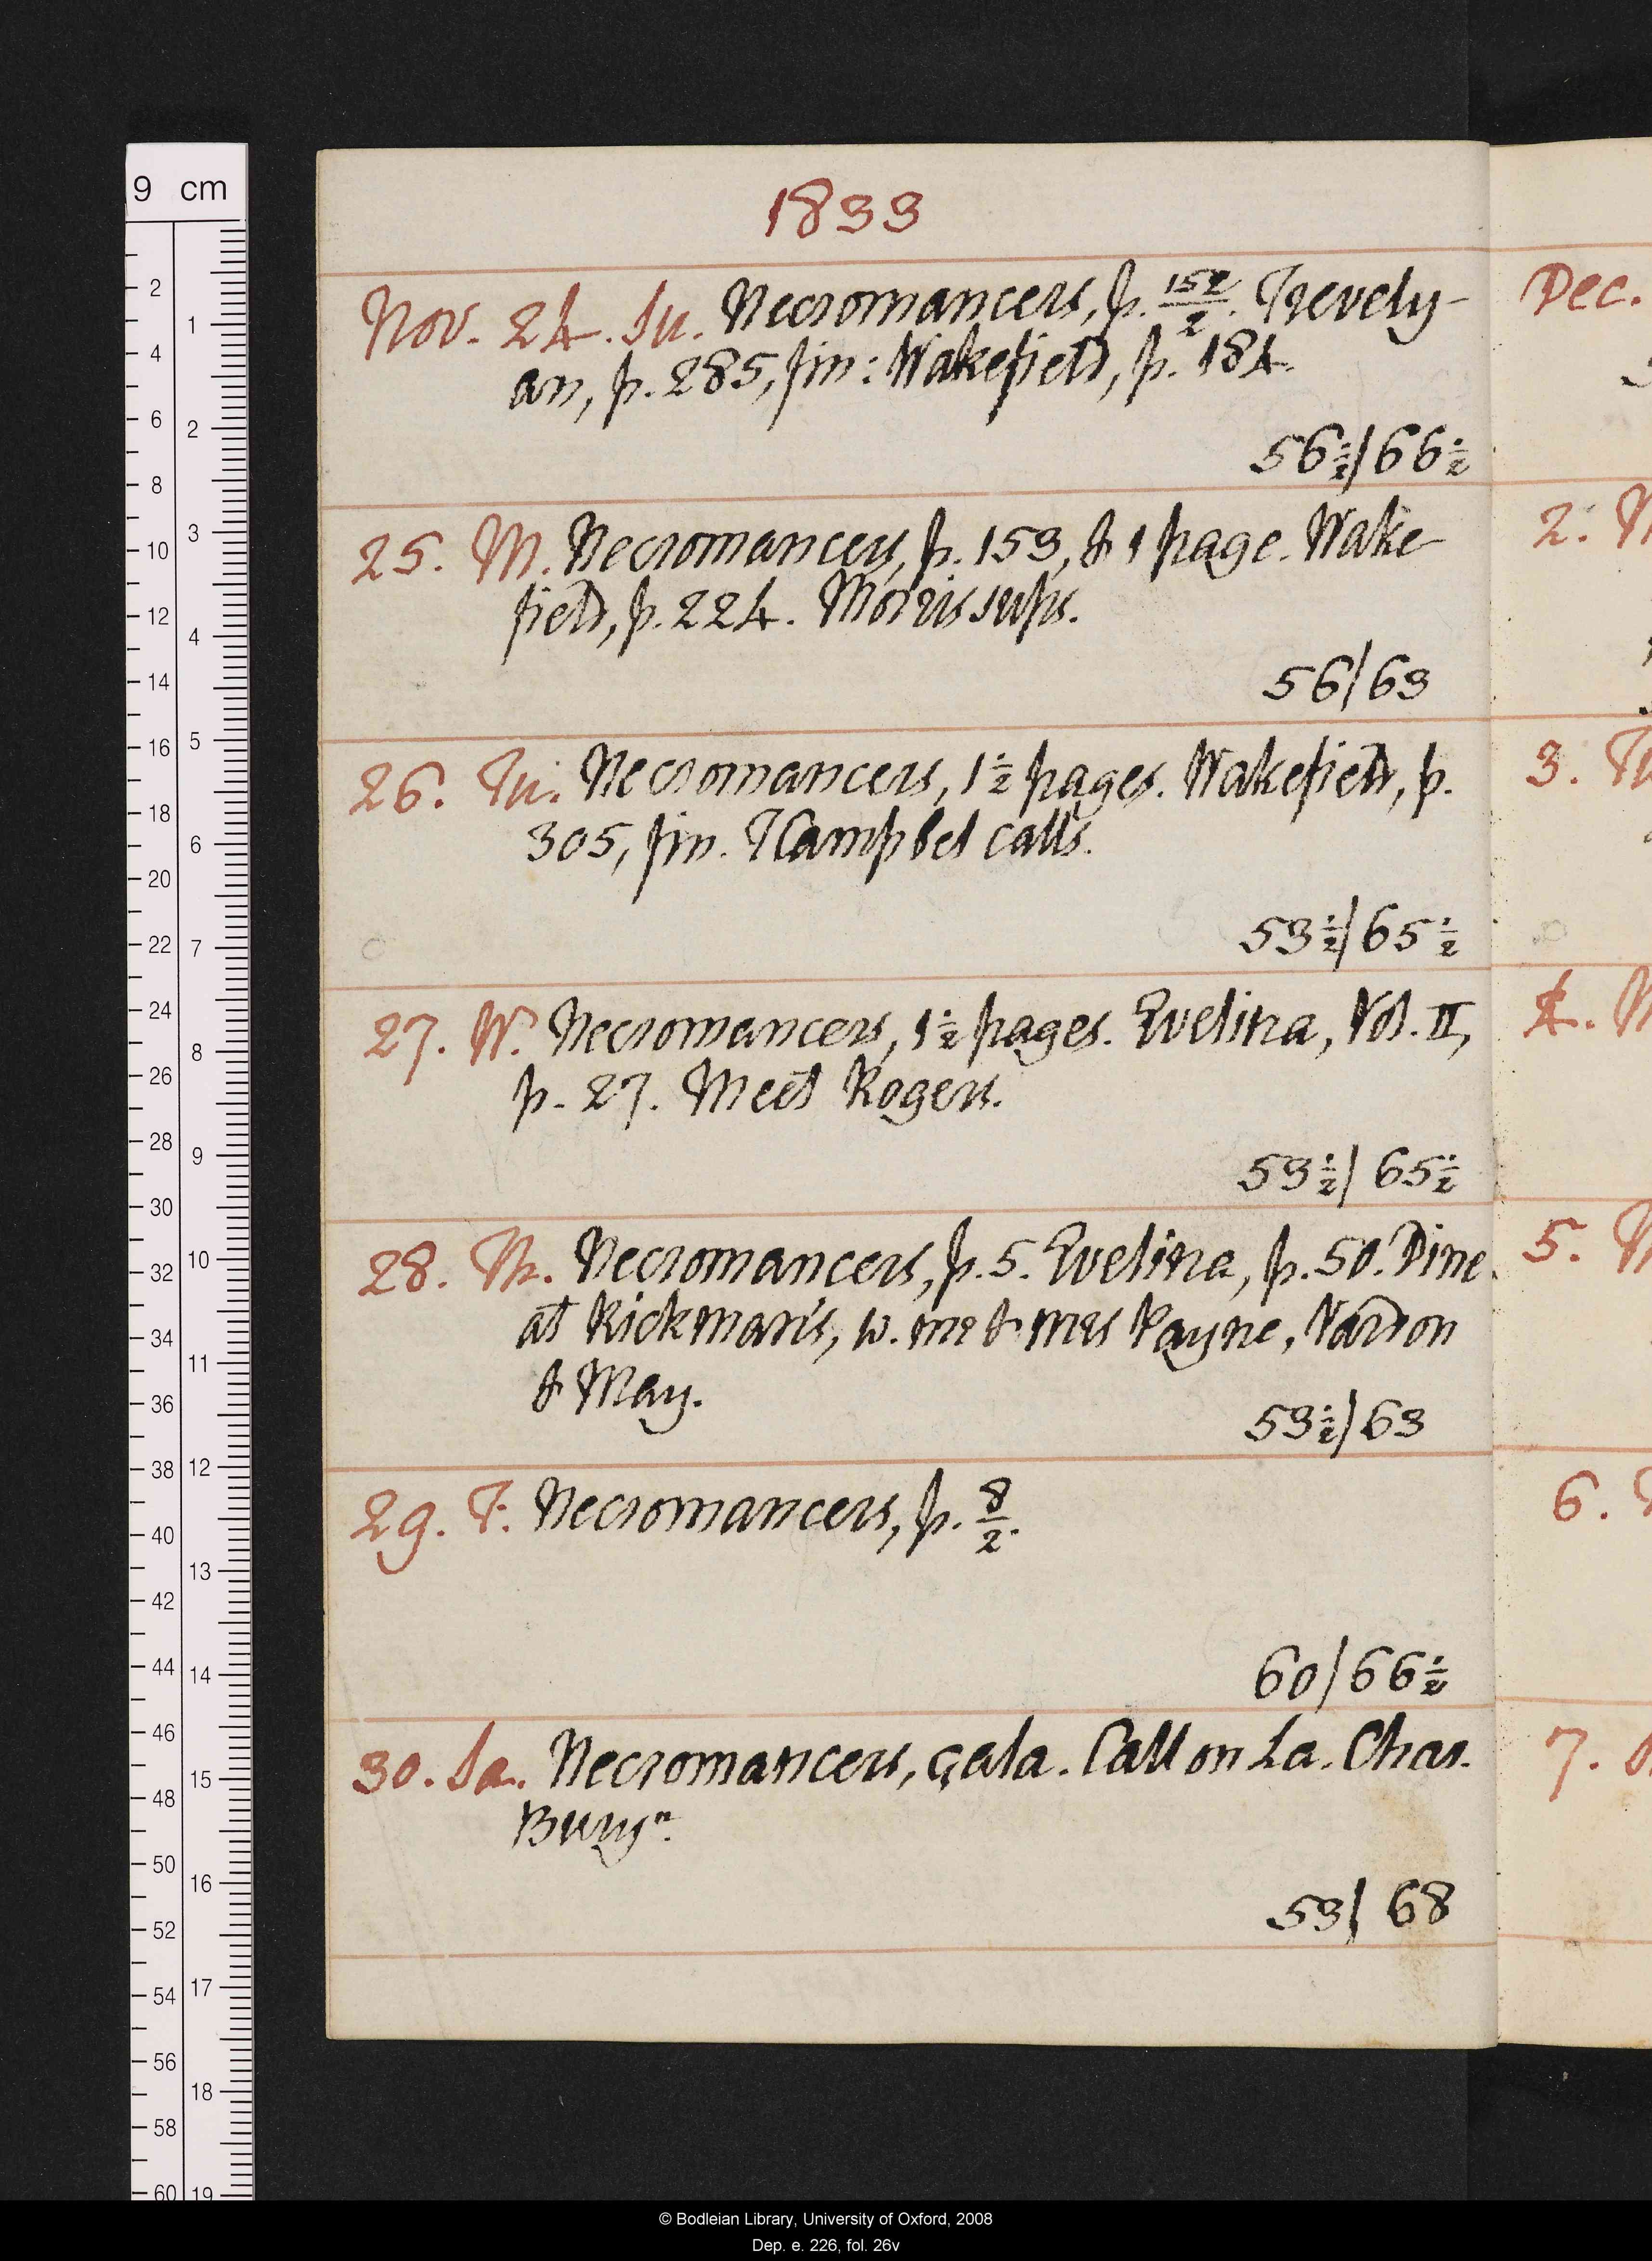 1833
Nov. 24. Su. Necromancers, p. 152/2. Trevely-
an, p. 285, fin: Wakefield, p. 184.
56½/66½
25. M. Necromancers, p. 153, & 1 page. Wake-
field, p. 224. Morris sups.
56/63
26. Tu. Necromancers, 1½ pages. Wakefield, p.
305, fin. TCampbel calls.
53½/65½
27. W. Necromancers, 1½ pages. Evelina, Vol. II,
p. 27. Meet Rogers.
53½/65½
28. Th. Necromancers, p. 5. Evelina, p. 50. Dine
at Rickman's, w. mr & mrs Payne, Vardon
& May.
53½/63
29. F. Necromancers, p. 8/2.
60/66½
30. Sa. Necromancers, çala. Call on La. Chas.
Buryⁿ.
53/68
Dec.
2.
3.
4.
5.
6.
7.
9 cm
2 4 6 8 10 12 14 16 18 20 22 24 26 28 30 32 34 36 38 40 42 44 46 48 50 52 54 56 58 60
1 2 3 4 5 6 7 8 9 10 11 12 13 14 15 16 17 18 19
© Bodleian Library, University of Oxford, 2008
Dep. e. 226, fol. 26v